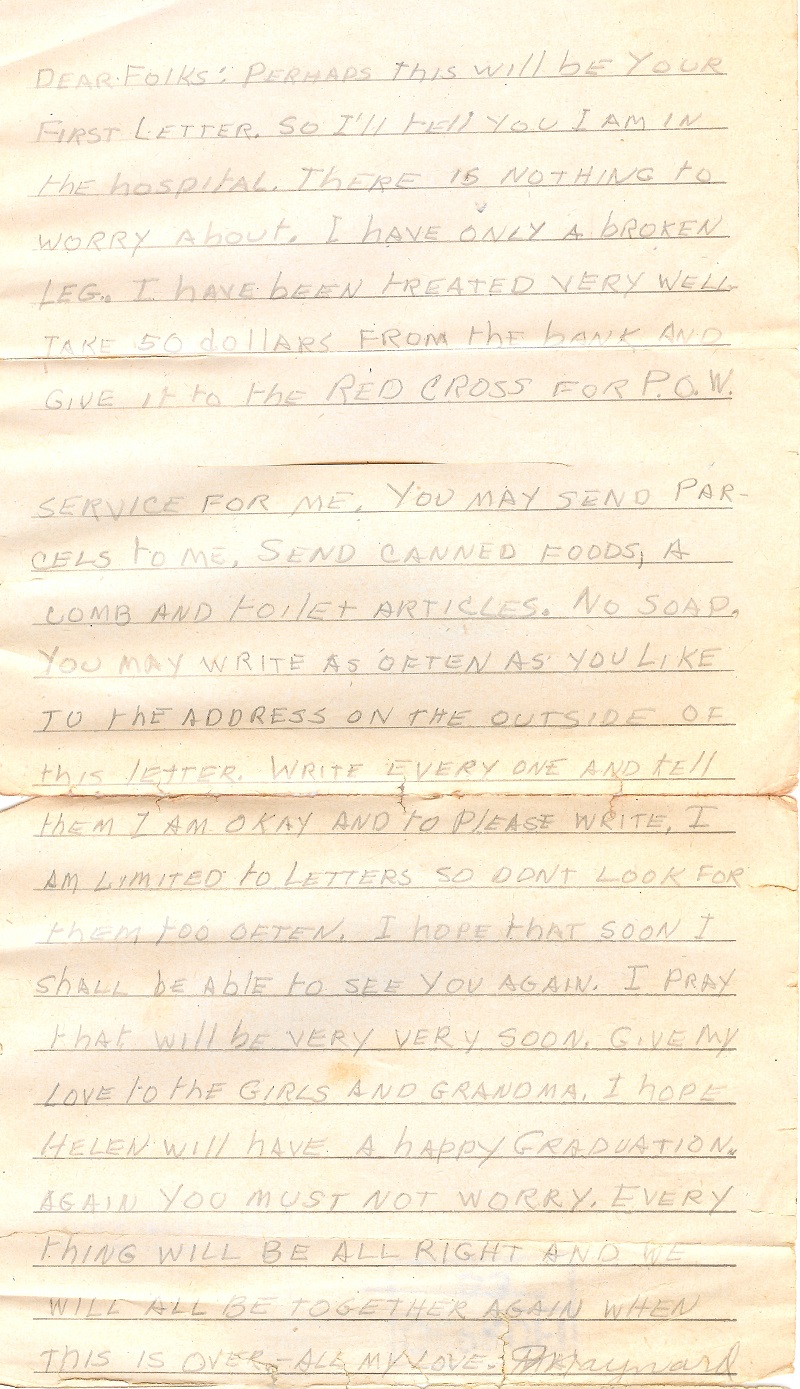 DEAR FOLKS: PERHAPS this will bE YOUR
FIRST LETTER. SO I'll tEll YOU I AM IN
thE hospital. THERE IS NOTHING to
WORRY About. I hAVE ONLY A bROKEN
LEG. I hAVE bEEN tREATED VERY WELL
TAKE 50 dollARS FROM thE bANK AND
GIVE It to thE RED CROSS FOR P.O.W.
SERVICE FOR ME. YOU MAY SEND PAR-
CELS to ME. SEND CANNED FOODS, A
COMB AND toilEt ARTICLES. NO SOAP.
YOU MAY WRITE AS OFTEN AS YOU LIKE
TO thE ADDRESS ON THE OUTSIDE OF
this lETTER. WRITE EVERY ONE AND tEll
thEM I AM OKAY AND to PlEASE WRITE. I
AM LIMITED to LETTERS SO DONT LOOK FOR
thEM too OFTEN. I hOPE thAT SOON I
ShALL bE AblE to SEE YOU AGAIN. I PRAY
thAt will bE VERY VERY SOON. GIVE MY
LOVE to thE GIRLS AND GRANDMA. I hOPE
HELEN will hAVE A hAPPY GRADUATION.
AGAIN YOU MUST NOT WORRY. EVERY
thING WILL BE ALL RIGHT AND WE
WILL ALL BE TOGETHER AGAIN WHEN
THIS IS OVER.-ALL MY LOVE. Maynard